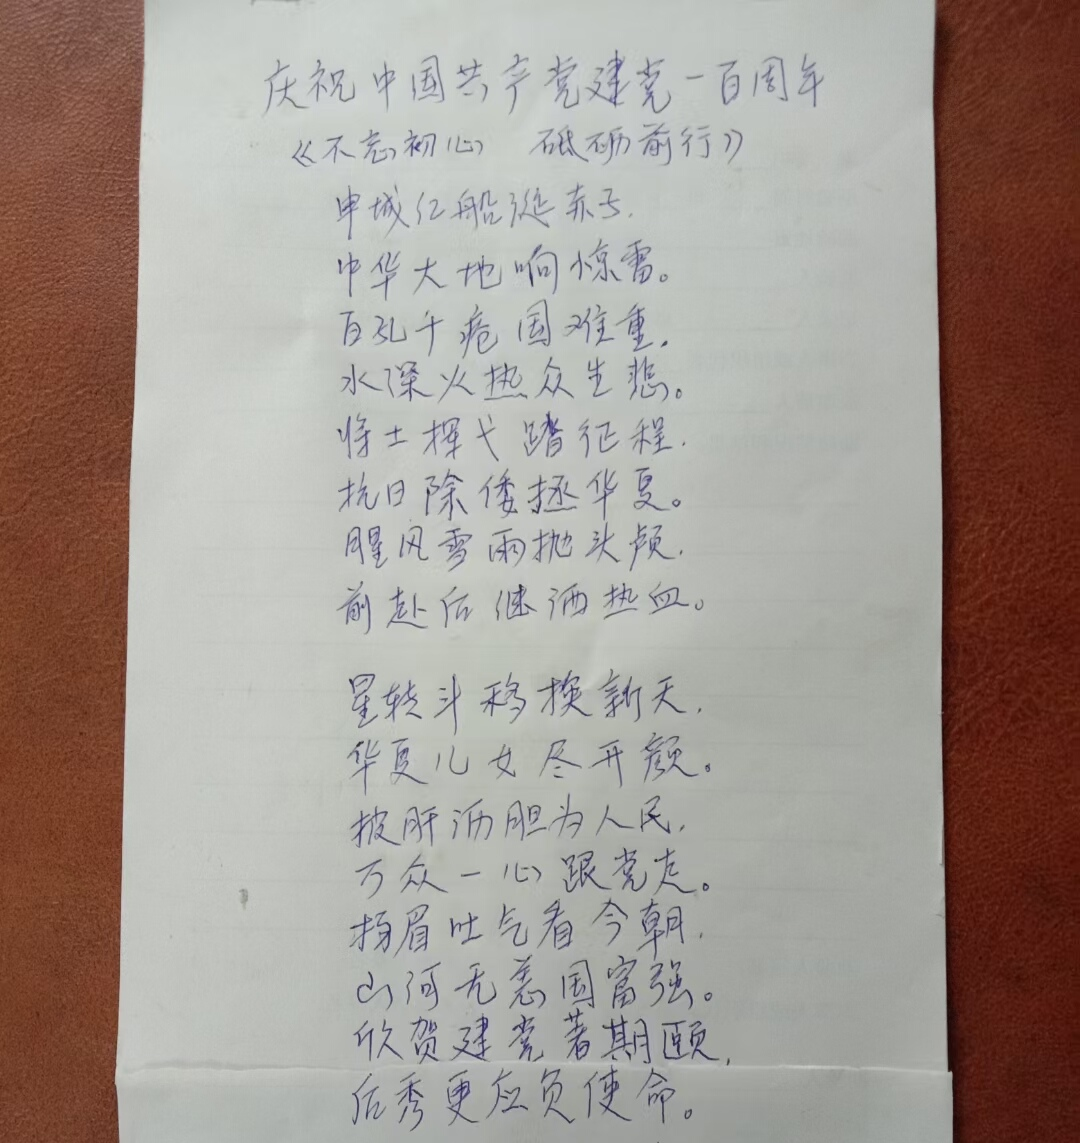 庆祝中国共产党建党一百周年
《不忘初心 砥砺前行》
申城红船诞赤子,
中华大地响惊雷。
百孔千疮国难重,
水深火热众生悲。
将士挥戈踏征程,
抗日除倭拯华夏。
腥风雪雨抛头颅,
前赴后继洒热血。
星转斗移换新天,
华夏儿女尽开颜。
披肝沥胆为人民,
万众一心跟党走。
扬眉吐气看今朝,
山河无恙国富强。
欣贺建党著期颐,
后秀更应负使命。